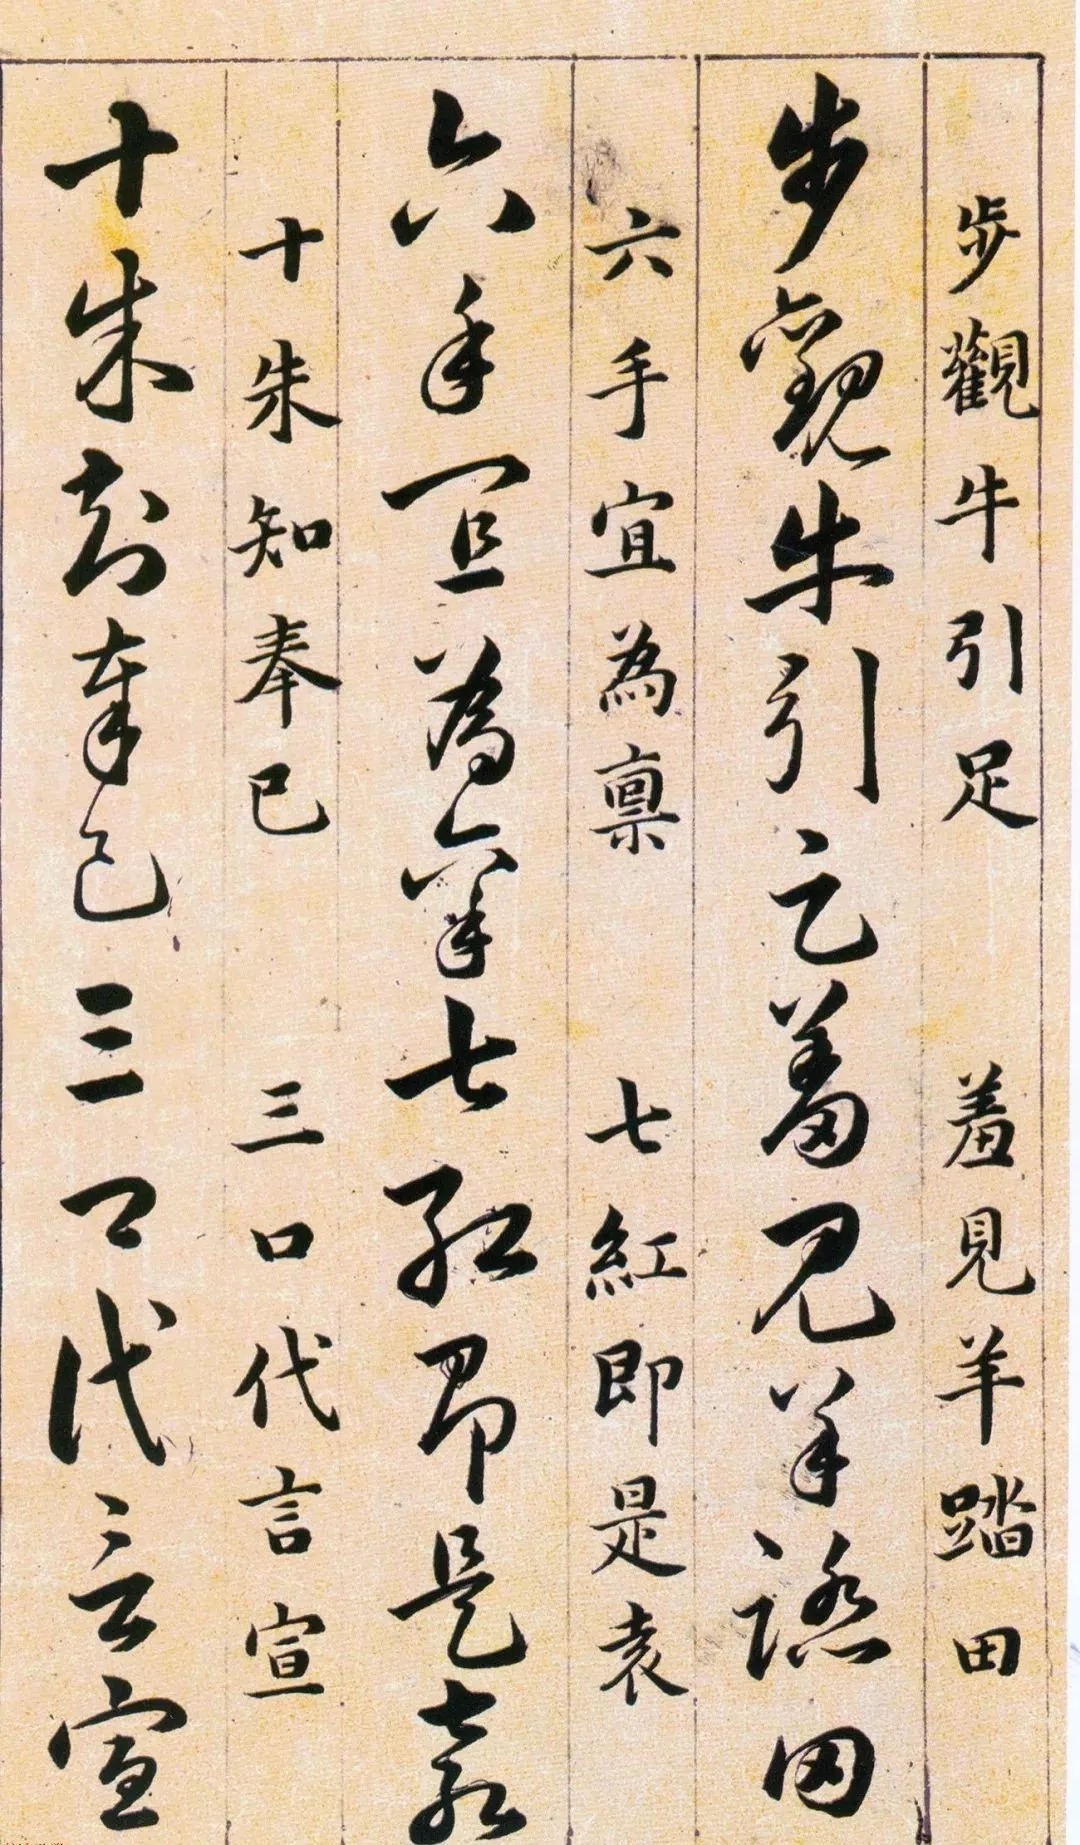 步觀牛引足 羞見羊踏田
步觀牛引足羞見羊踏田
六手宜為稟 七紅即是袁
六手宜為稟七紅即是袁
十朱知奉巳 三口代言宣
十朱知奉巳三口代言宣